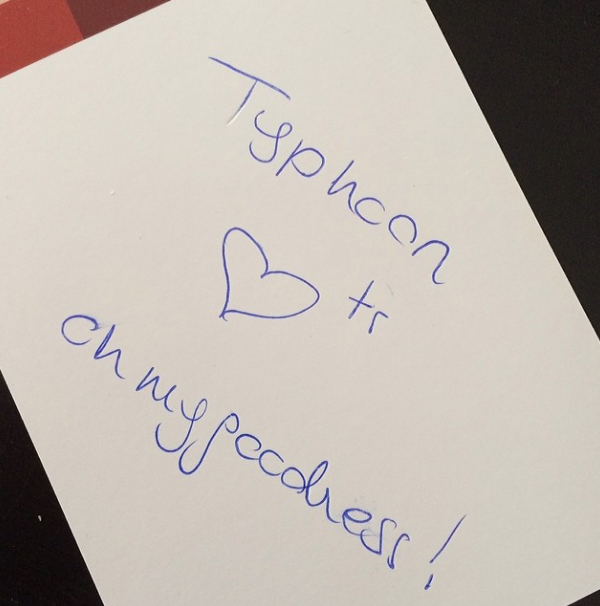 Typhoon
♡ tr
ohmygoodness!